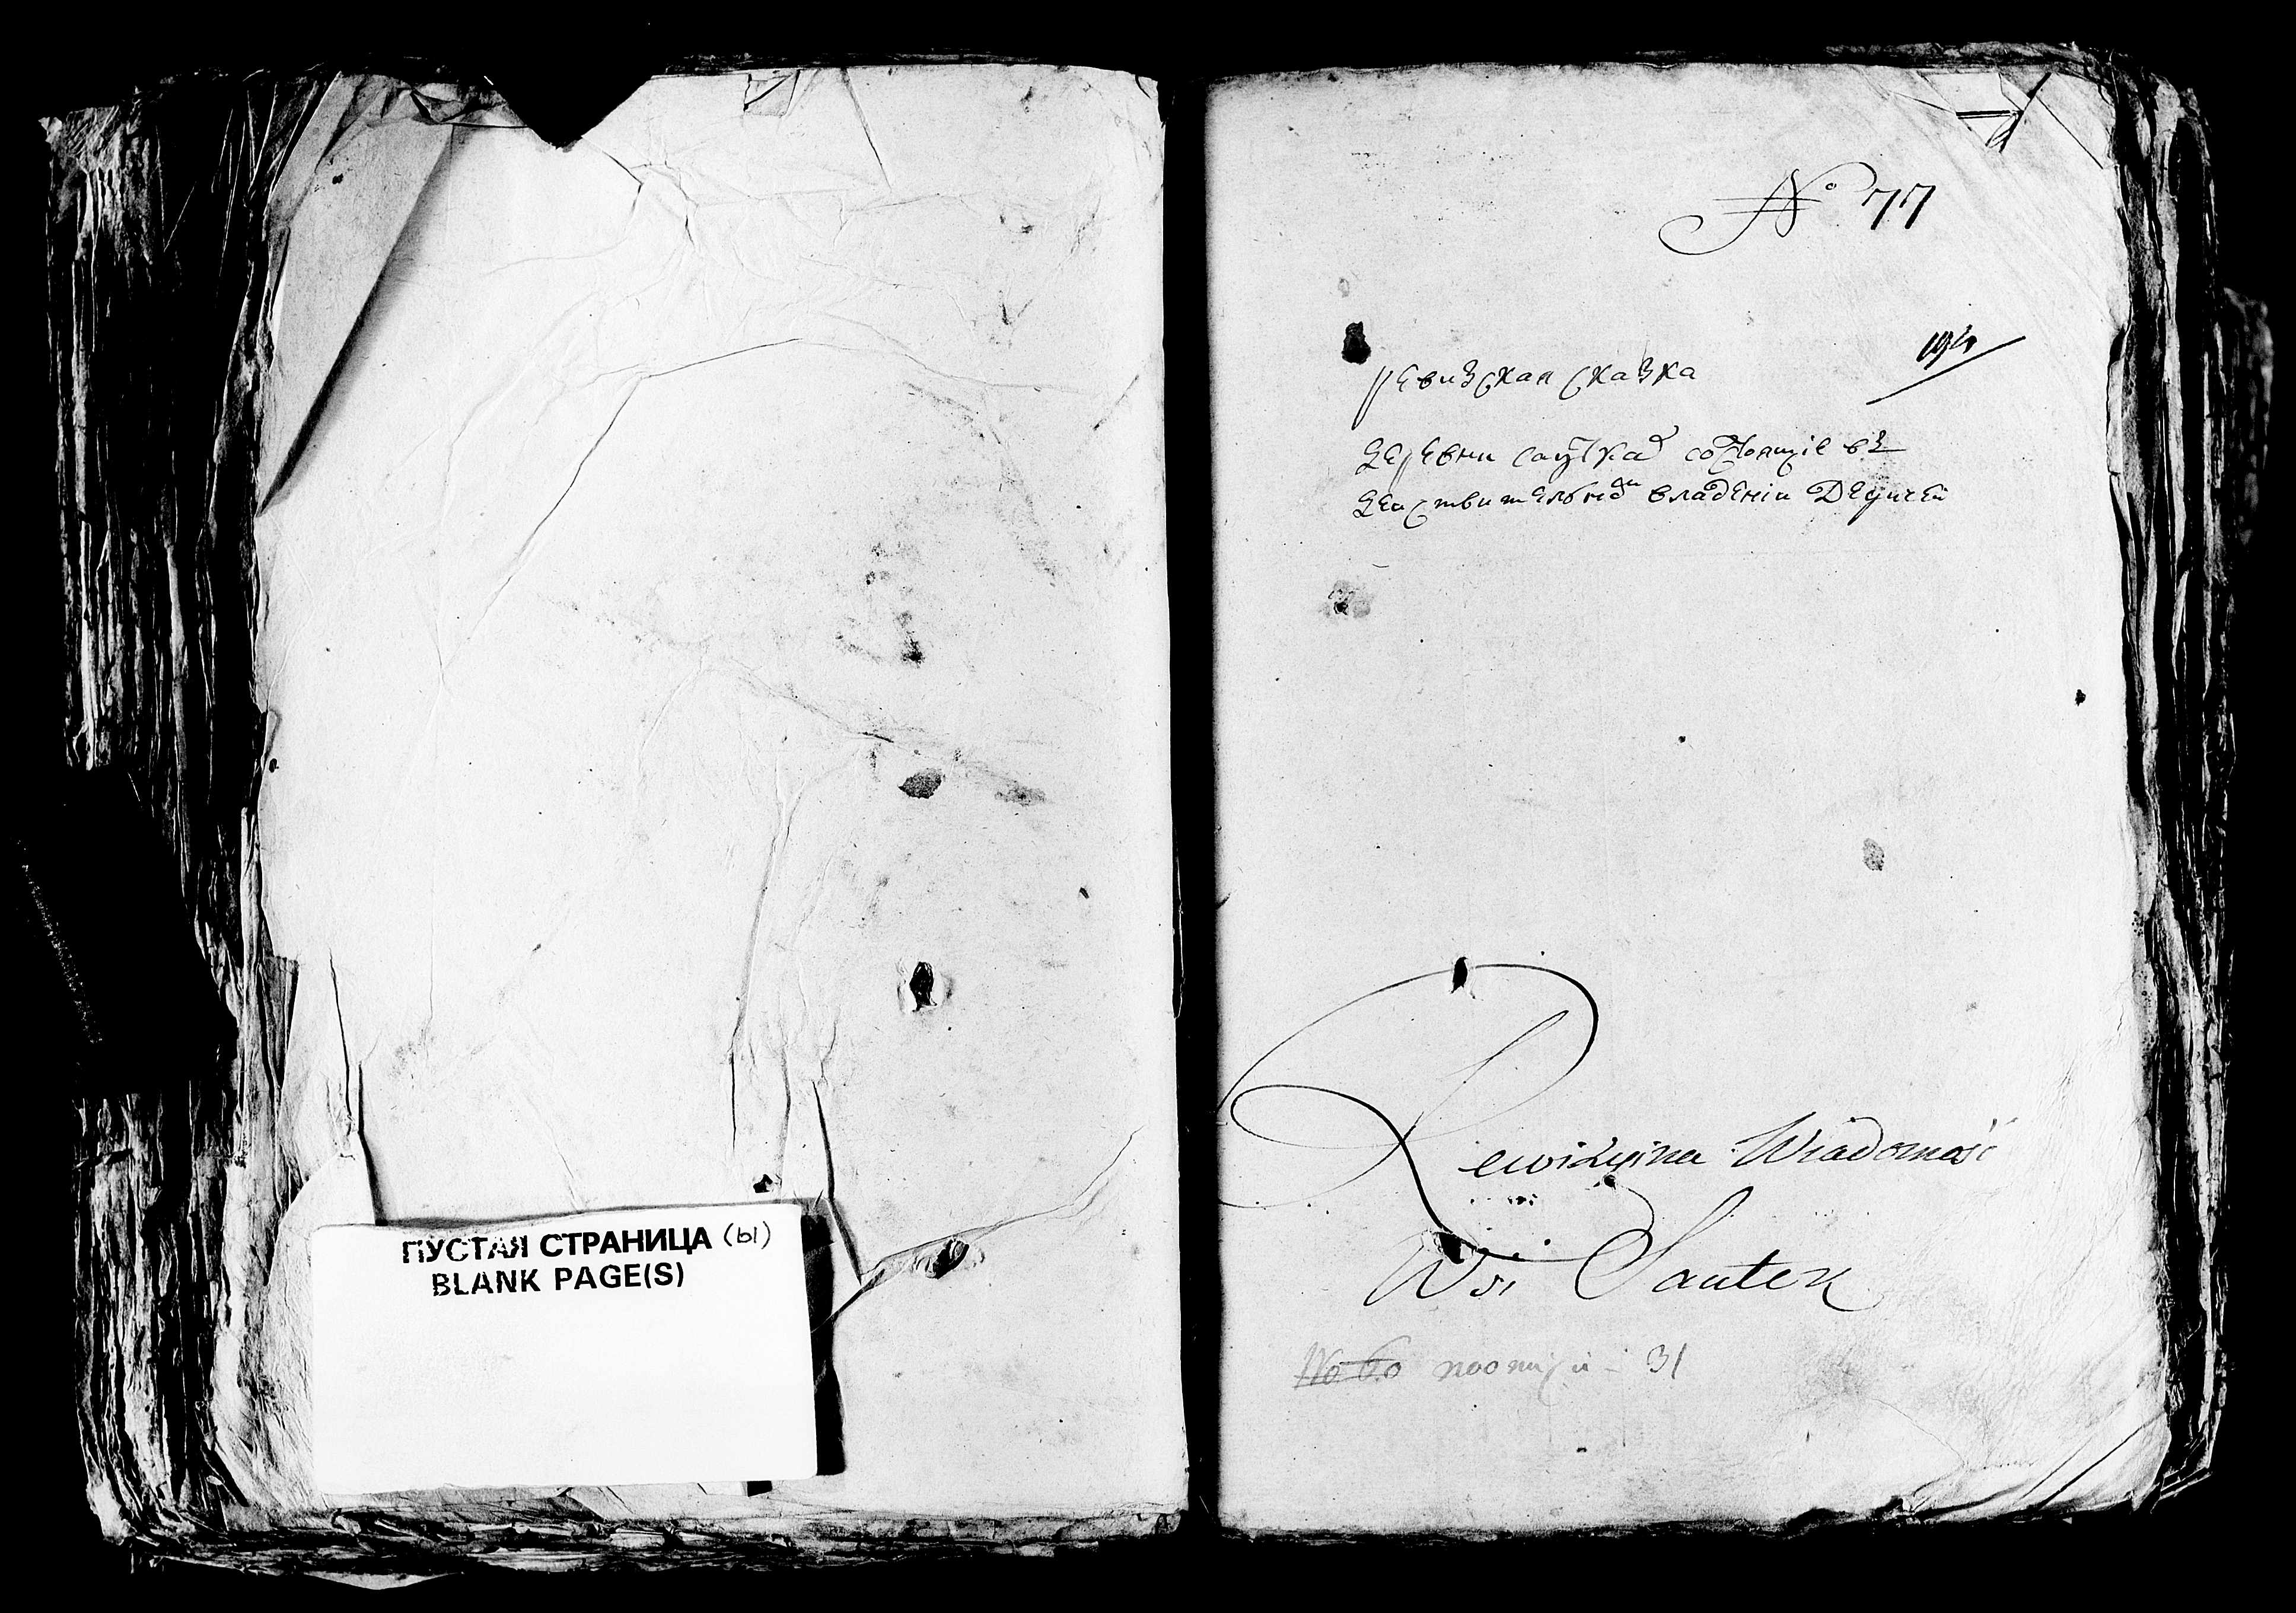 ПУСТАЯ СТРАНИЦА (ы)
BLANK PAGE(S)
№ 77
ревизская сказка
деревни саутка состоящіе въ
действительномъ владеніи
Rewizyina Wiadomość
Wsi Sautek
31